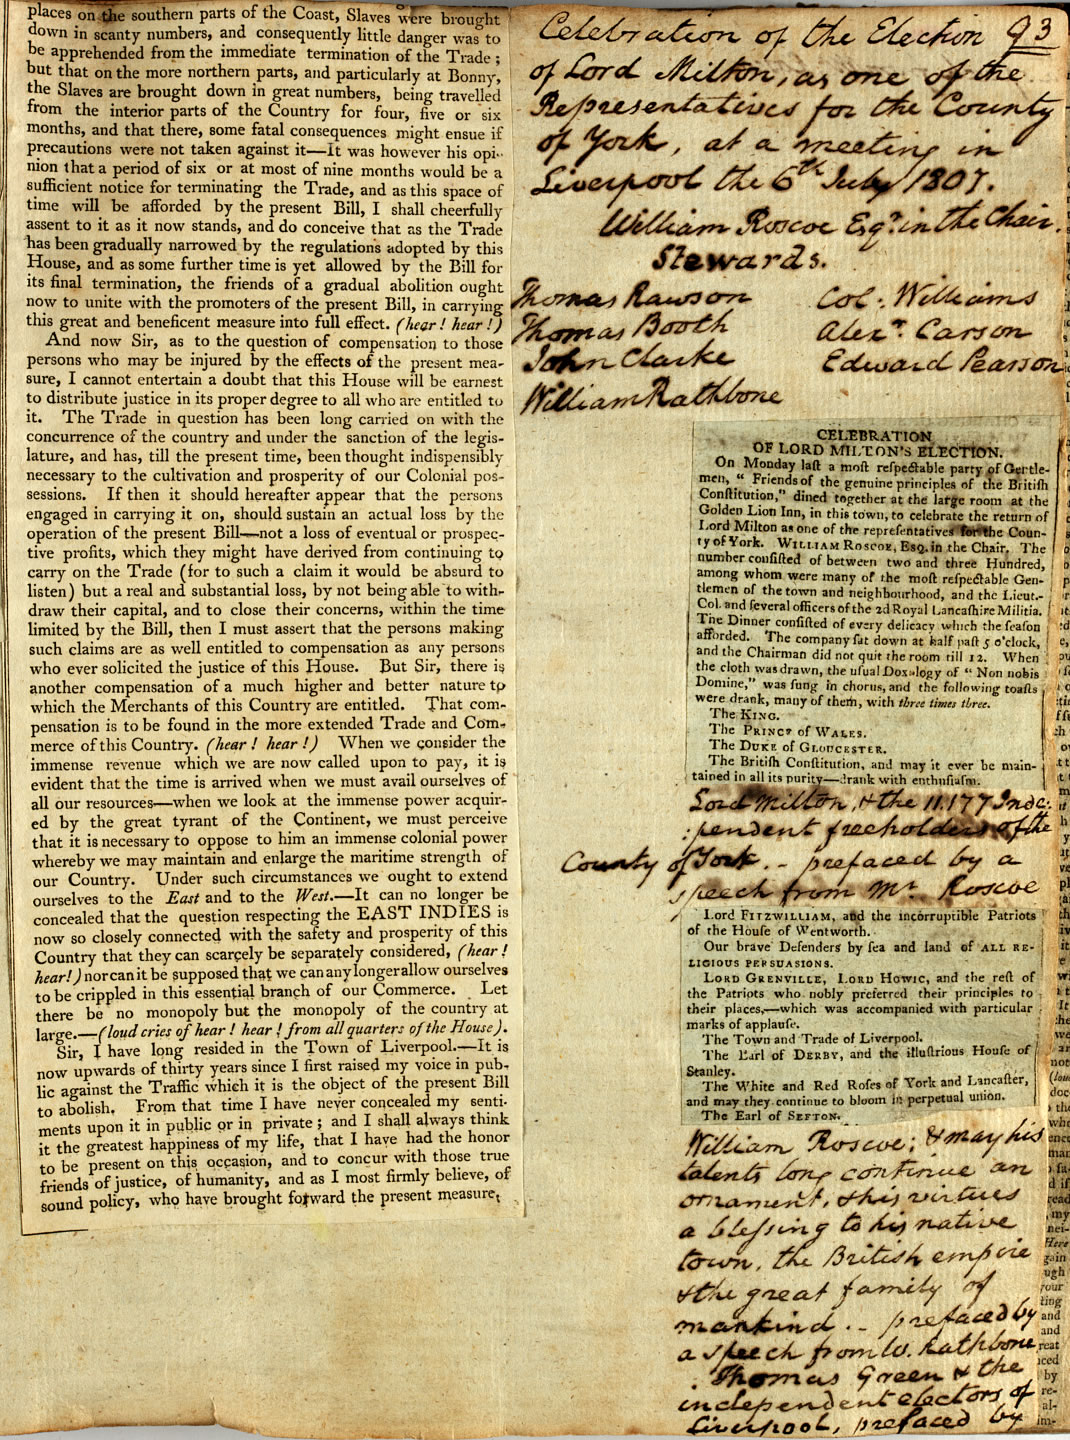 places on the southern parts of the Coast, Slaves were brought
down in scanty numbers, and consequently little danger was to
be apprehended from the immediate termination of the Trade;
but that on the more northern parts, and particularly at Bonny,
the Slaves are brought down in great numbers, being travelled
from the interior parts of the Country for four, five or six
months, and that there, some fatal consequences might ensue if
precautions were not taken against it—It was however his opi-
nion that a period of six or at most of nine months would be a
sufficient notice for terminating the Trade, and as this space of
time will be afforded by the present Bill, I shall cheerfully
assent to it as it now stands, and do conceive that as the Trade
has been gradually narrowed by the regulations adopted by this
House, and as some further time is yet allowed by the Bill for
its final termination, the friends of a gradual abolition ought
now to unite with the promoters of the present Bill, in carrying
this great and beneficent measure into full effect. (hear! hear!)
And now Sir, as to the question of compensation to those
persons who may be injured by the effects of the present mea-
sure, I cannot entertain a doubt that this House will be earnest
to distribute justice in its proper degree to all who are entitled to
it. The Trade in question has been long carried on with the
concurrence of the country and under the sanction of the legis-
lature, and has, till the present time, been thought indispensibly
necessary to the cultivation and prosperity of our Colonial pos-
sessions. If then it should hereafter appear that the persons
engaged in carrying it on, should sustain an actual loss by the
operation of the present Bill—not a loss of eventual or prospec-
tive profits, which they might have derived from continuing to
carry on the Trade (for to such a claim it would be absurd to
listen) but a real and substantial loss, by not being able to with-
draw their capital, and to close their concerns, within the time
limited by the Bill, then I must assert that the persons making
such claims are as well entitled to compensation as any persons
who ever solicited the justice of this House. But Sir, there is
another compensation of a much higher and better nature to
which the Merchants of this Country are entitled. That com-
pensation is to be found in the more extended Trade and Com-
merce of this Country. (hear! hear!) When we consider the
immense revenue which we are now called upon to pay, it is
evident that the time is arrived when we must avail ourselves of
all our resources—when we look at the immense power acquir-
ed by the great tyrant of the Continent, we must perceive
that it is necessary to oppose to him an immense colonial power
whereby we may maintain and enlarge the maritime strength of
our Country. Under such circumstances we ought to extend
ourselves to the East and to the West.—It can no longer be
concealed that the question respecting the EAST INDIES is
now so closely connected with the safety and prosperity of this
Country that they can scarcely be separately considered, (hear!
hear!) nor can it be supposed that we can any longer allow ourselves
to be crippled in this essential branch of our Commerce. Let
there be no monopoly but the monopoly of the country at
large.—(loud cries of hear! hear! from all quarters of the House).
Sir, I have long resided in the Town of Liverpool.—It is
now upwards of thirty years since I first raised my voice in pub-
lic against the Traffic which it is the object of the present Bill
to abolish. From that time I have never concealed my senti-
ments upon it in public or in private; and I shall always think
it the greatest happiness of my life, that I have had the honor
to be present on this occasion, and to concur with those true
friends of justice, of humanity, and as I most firmly believe, of
sound policy, who have brought forward the present measure,
Celebration of the Election 93
of Lord Milton, as one of the
Representatives for the County
of York, at a meeting in
Liverpool the 6th July 1807.
William Roscoe Esqr. in the Chair.
Stewards.
Thomas Rawson Col: Williams
Thomas Booth Alexr. Carson
John Clarke Edward Pearson
William Rathbone
CELEBRATION
OF LORD MILTON'S ELECTION.
On Monday laſt a moſt reſpectable party of Gentle-
men, "Friends of the genuine principles of the Britiſh
Conſtitution," dined together at the large room at the
Golden Lion Inn, in this town, to celebrate the return of
Lord Milton as one of the repreſentatives for the Coun-
ty of York. WILLIAM ROSCOE, ESQ. in the Chair. The
number conſiſted of between two and three Hundred,
among whom were many of the moſt reſpectable Gen-
tlemen of the town and neighbourhood, and the Lieut.-
Col. and ſeveral officers of the 2d Royal Lancaſhire Militia.
The Dinner conſiſted of every delicacy which the ſeaſon
afforded. The company ſat down at half paſt 5 o'clock,
and the Chairman did not quit the room till 12. When
the cloth was drawn, the uſual Doxology of "Non nobis
Domine," was ſung in chorus, and the following toaſts
were drank, many of them, with three times three.
The KING.
The PRINCE of WALES.
The DUKE of GLOUCESTER.
The Britiſh Conſtitution, and may it ever be main-
tained in all its purity—drank with enthuſiaſm.
Lord Milton, & the 11,177 Inde:
:pendent freeholders of the
County of York. -- prefaced by a
speech from Mr. Roscoe
Lord FITZWILLIAM, and the incorruptible Patriots
of the Houſe of Wentworth.
Our brave Defenders by ſea and land of ALL RE-
LIGIOUS PERSUASIONS.
LORD GRENVILLE, LORD HOWIC, and the reſt of
the Patriots who nobly preferred their principles to
their places,—which was accompanied with particular
marks of applauſe.
The Town and Trade of Liverpool.
The Earl of DERBY, and the illuſtrious Houſe of
Stanley.
The White and Red Roſes of York and Lancaſter,
and may they continue to bloom in perpetual union.
The Earl of SEFTON.
William Roscoe; & may his
talents long continue an
ornament, & his virtues
a bleſsing to his native
town, the British empire
& the great family of
mankind. -- prefaced by
a speech from W. Rathbone
Thomas Green & the
independent electors of
Liverpool, prefaced by